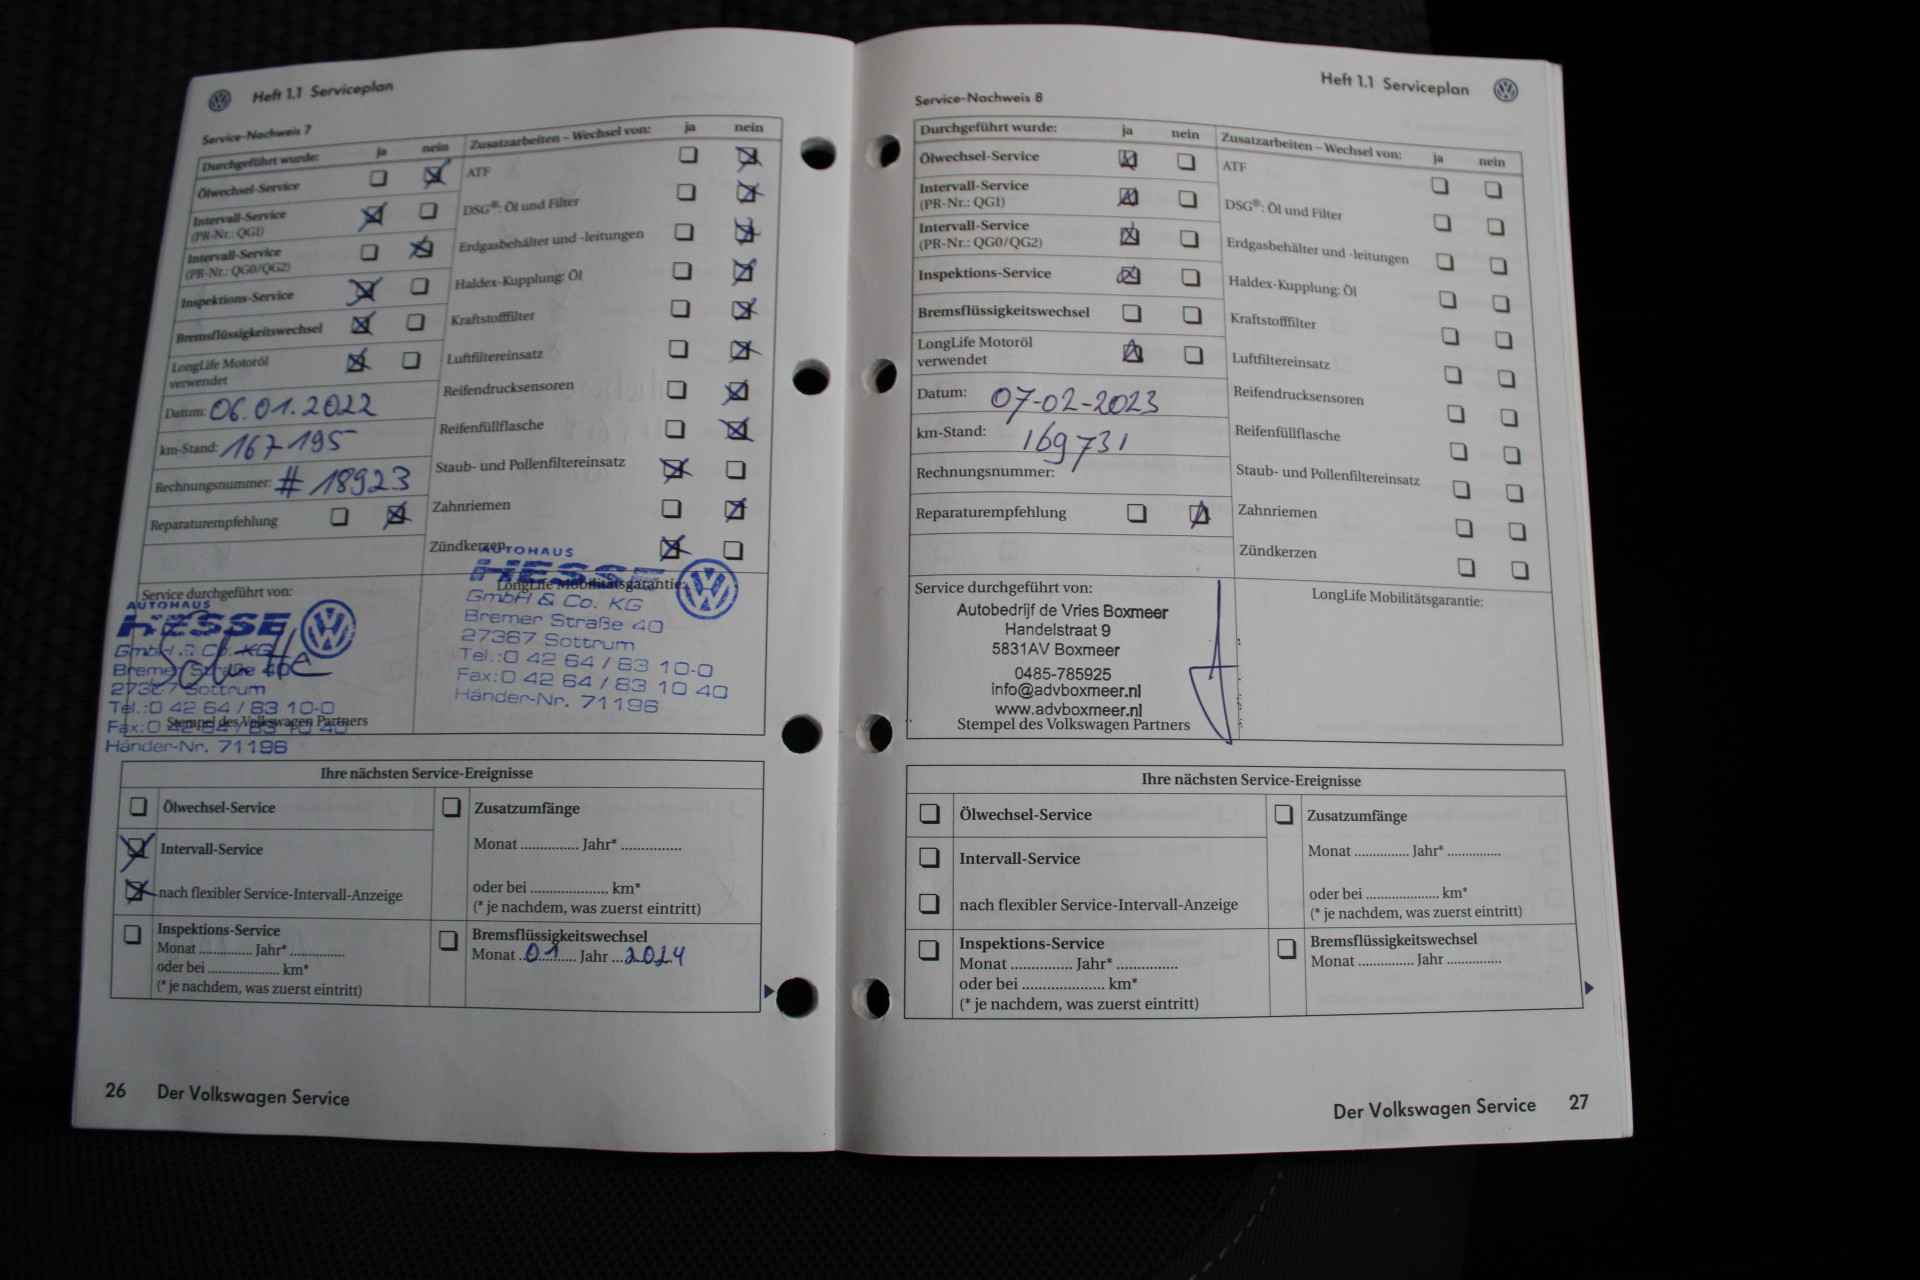 Heft 1.1 Serviceplan
Service-Nachweis 7
Durchgeführt wurde: ja nein
Ölwechsel-Service
Intervall-Service
(PR-Nr.: QG1)
Intervall-Service
(PR-Nr.: QG0/QG2)
Inspektions-Service
Bremsflüssigkeitswechsel
LongLife Motoröl
verwendet
Datum: 06.01.2022
km-Stand: 167195
Rechnungsnummer: # 18923
Reparaturempfehlung
Zusatzarbeiten – Wechsel von: ja nein
ATF
DSG®: Öl und Filter
Erdgasbehälter und -leitungen
Haldex-Kupplung: Öl
Kraftstofffilter
Luftfiltereinsatz
Reifendrucksensoren
Reifenfüllflasche
Staub- und Pollenfiltereinsatz
Zahnriemen
Zündkerzen
Service durchgeführt von:
AUTOHAUS
HESSE
GmbH & Co. KG
Bremer Straße 40
27367 Sottrum
Tel.:0 42 64 / 83 10-0
Fax:0 42 64 / 83 10 40
Händer-Nr. 71196
Stempel des Volkswagen Partners
LongLife Mobilitätsgarantie:
AUTOHAUS
HESSE
GmbH & Co. KG
Bremer Straße 40
27367 Sottrum
Tel.:0 42 64 / 83 10-0
Fax:0 42 64 / 83 10 40
Händer-Nr. 71196
Ihre nächsten Service-Ereignisse
Ölwechsel-Service
Intervall-Service
nach flexibler Service-Intervall-Anzeige
Inspektions-Service
Monat .............. Jahr* ..............
oder bei .................... km*
(* je nachdem, was zuerst eintritt)
Zusatzumfänge
Monat ............... Jahr* ...............
oder bei .................... km*
(* je nachdem, was zuerst eintritt)
Bremsflüssigkeitswechsel
Monat 01 Jahr 2024
26 Der Volkswagen Service
Heft 1.1 Serviceplan
Service-Nachweis 8
Durchgeführt wurde: ja nein
Ölwechsel-Service
Intervall-Service
(PR-Nr.: QG1)
Intervall-Service
(PR-Nr.: QG0/QG2)
Inspektions-Service
Bremsflüssigkeitswechsel
LongLife Motoröl
verwendet
Datum: 07-02-2023
km-Stand: 169731
Rechnungsnummer:
Reparaturempfehlung
Zusatzarbeiten – Wechsel von: ja nein
ATF
DSG®: Öl und Filter
Erdgasbehälter und -leitungen
Haldex-Kupplung: Öl
Kraftstofffilter
Luftfiltereinsatz
Reifendrucksensoren
Reifenfüllflasche
Staub- und Pollenfiltereinsatz
Zahnriemen
Zündkerzen
Service durchgeführt von:
Autobedrijf de Vries Boxmeer
Handelstraat 9
5831AV Boxmeer
0485-785925
info@advboxmeer.nl
www.advboxmeer.nl
Stempel des Volkswagen Partners
LongLife Mobilitätsgarantie:
Ihre nächsten Service-Ereignisse
Ölwechsel-Service
Intervall-Service
nach flexibler Service-Intervall-Anzeige
Inspektions-Service
Monat ............... Jahr* ...............
oder bei ..................... km*
(* je nachdem, was zuerst eintritt)
Zusatzumfänge
Monat .............. Jahr* ..............
oder bei .................... km*
(* je nachdem, was zuerst eintritt)
Bremsflüssigkeitswechsel
Monat .............. Jahr ..............
Der Volkswagen Service 27